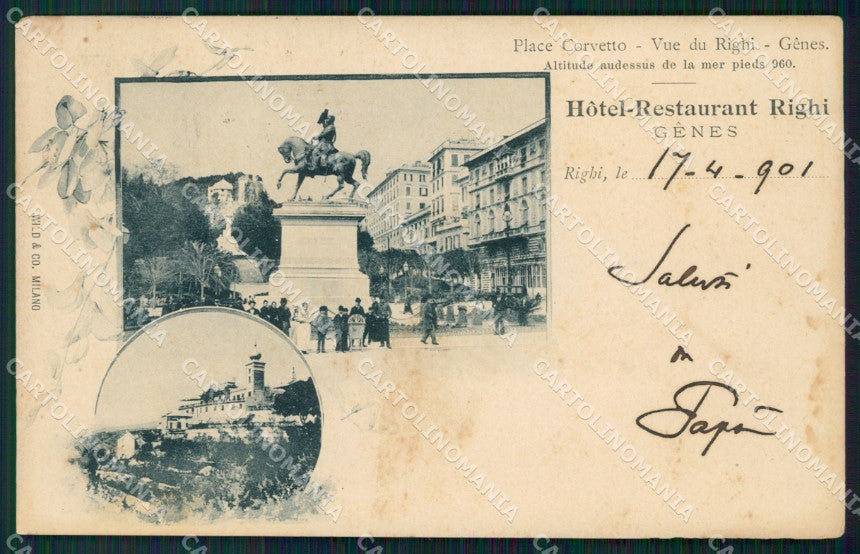 Place Corvetto - Vue du Righi - Gênes.
Altitude audessus de la mer pieds 960.
Hôtel-Restaurant Righi
GÊNES
Righi, le 17-4-901
Saluti
Papà
WILD & CO. MILANO
CARTOLINOMANIA